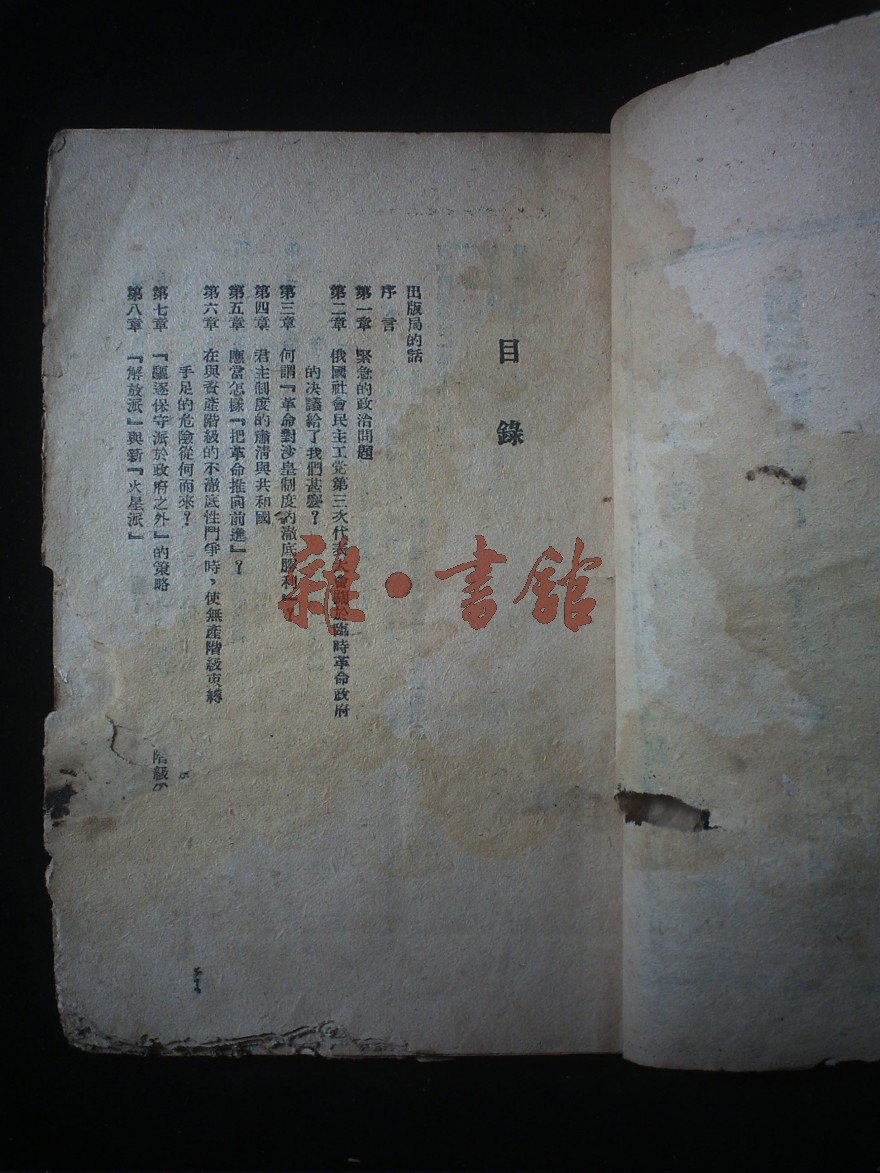 目錄
出版局的話
序言
第一章 緊急的政治問題
第二章 俄國社會民主工党第三次代表大會關於臨時革命政府
的決議給了我們甚麼？
第三章 何謂『革命對沙皇制度的澈底勝利』？
第四章 君主制度的肅清與共和國
第五章 應當怎樣『把革命推向前進』？
第六章 在與資產階級的不澈底性鬥爭時，使無產階級束縛
手足的危險從何而來？
第七章 『驅逐保守派於政府之外』的策略
第八章 『解放派』與新『火星派』
階級
雜·書館